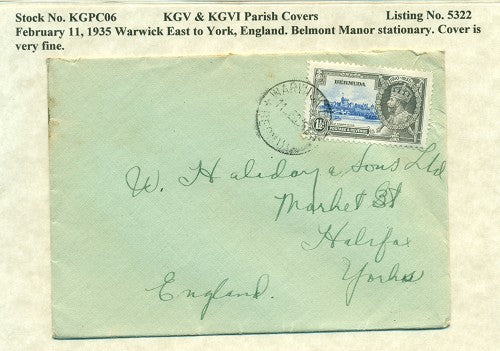 Stock No. KGPC06 KGV & KGVI Parish Covers Listing No. 5322
February 11, 1935 Warwick East to York, England. Belmont Manor stationary. Cover is
very fine.
BERMUDA
1½
POSTAGE & REVENUE
W. Haliday & Sons Ltd
Market St
Halifax
Yorks
England.